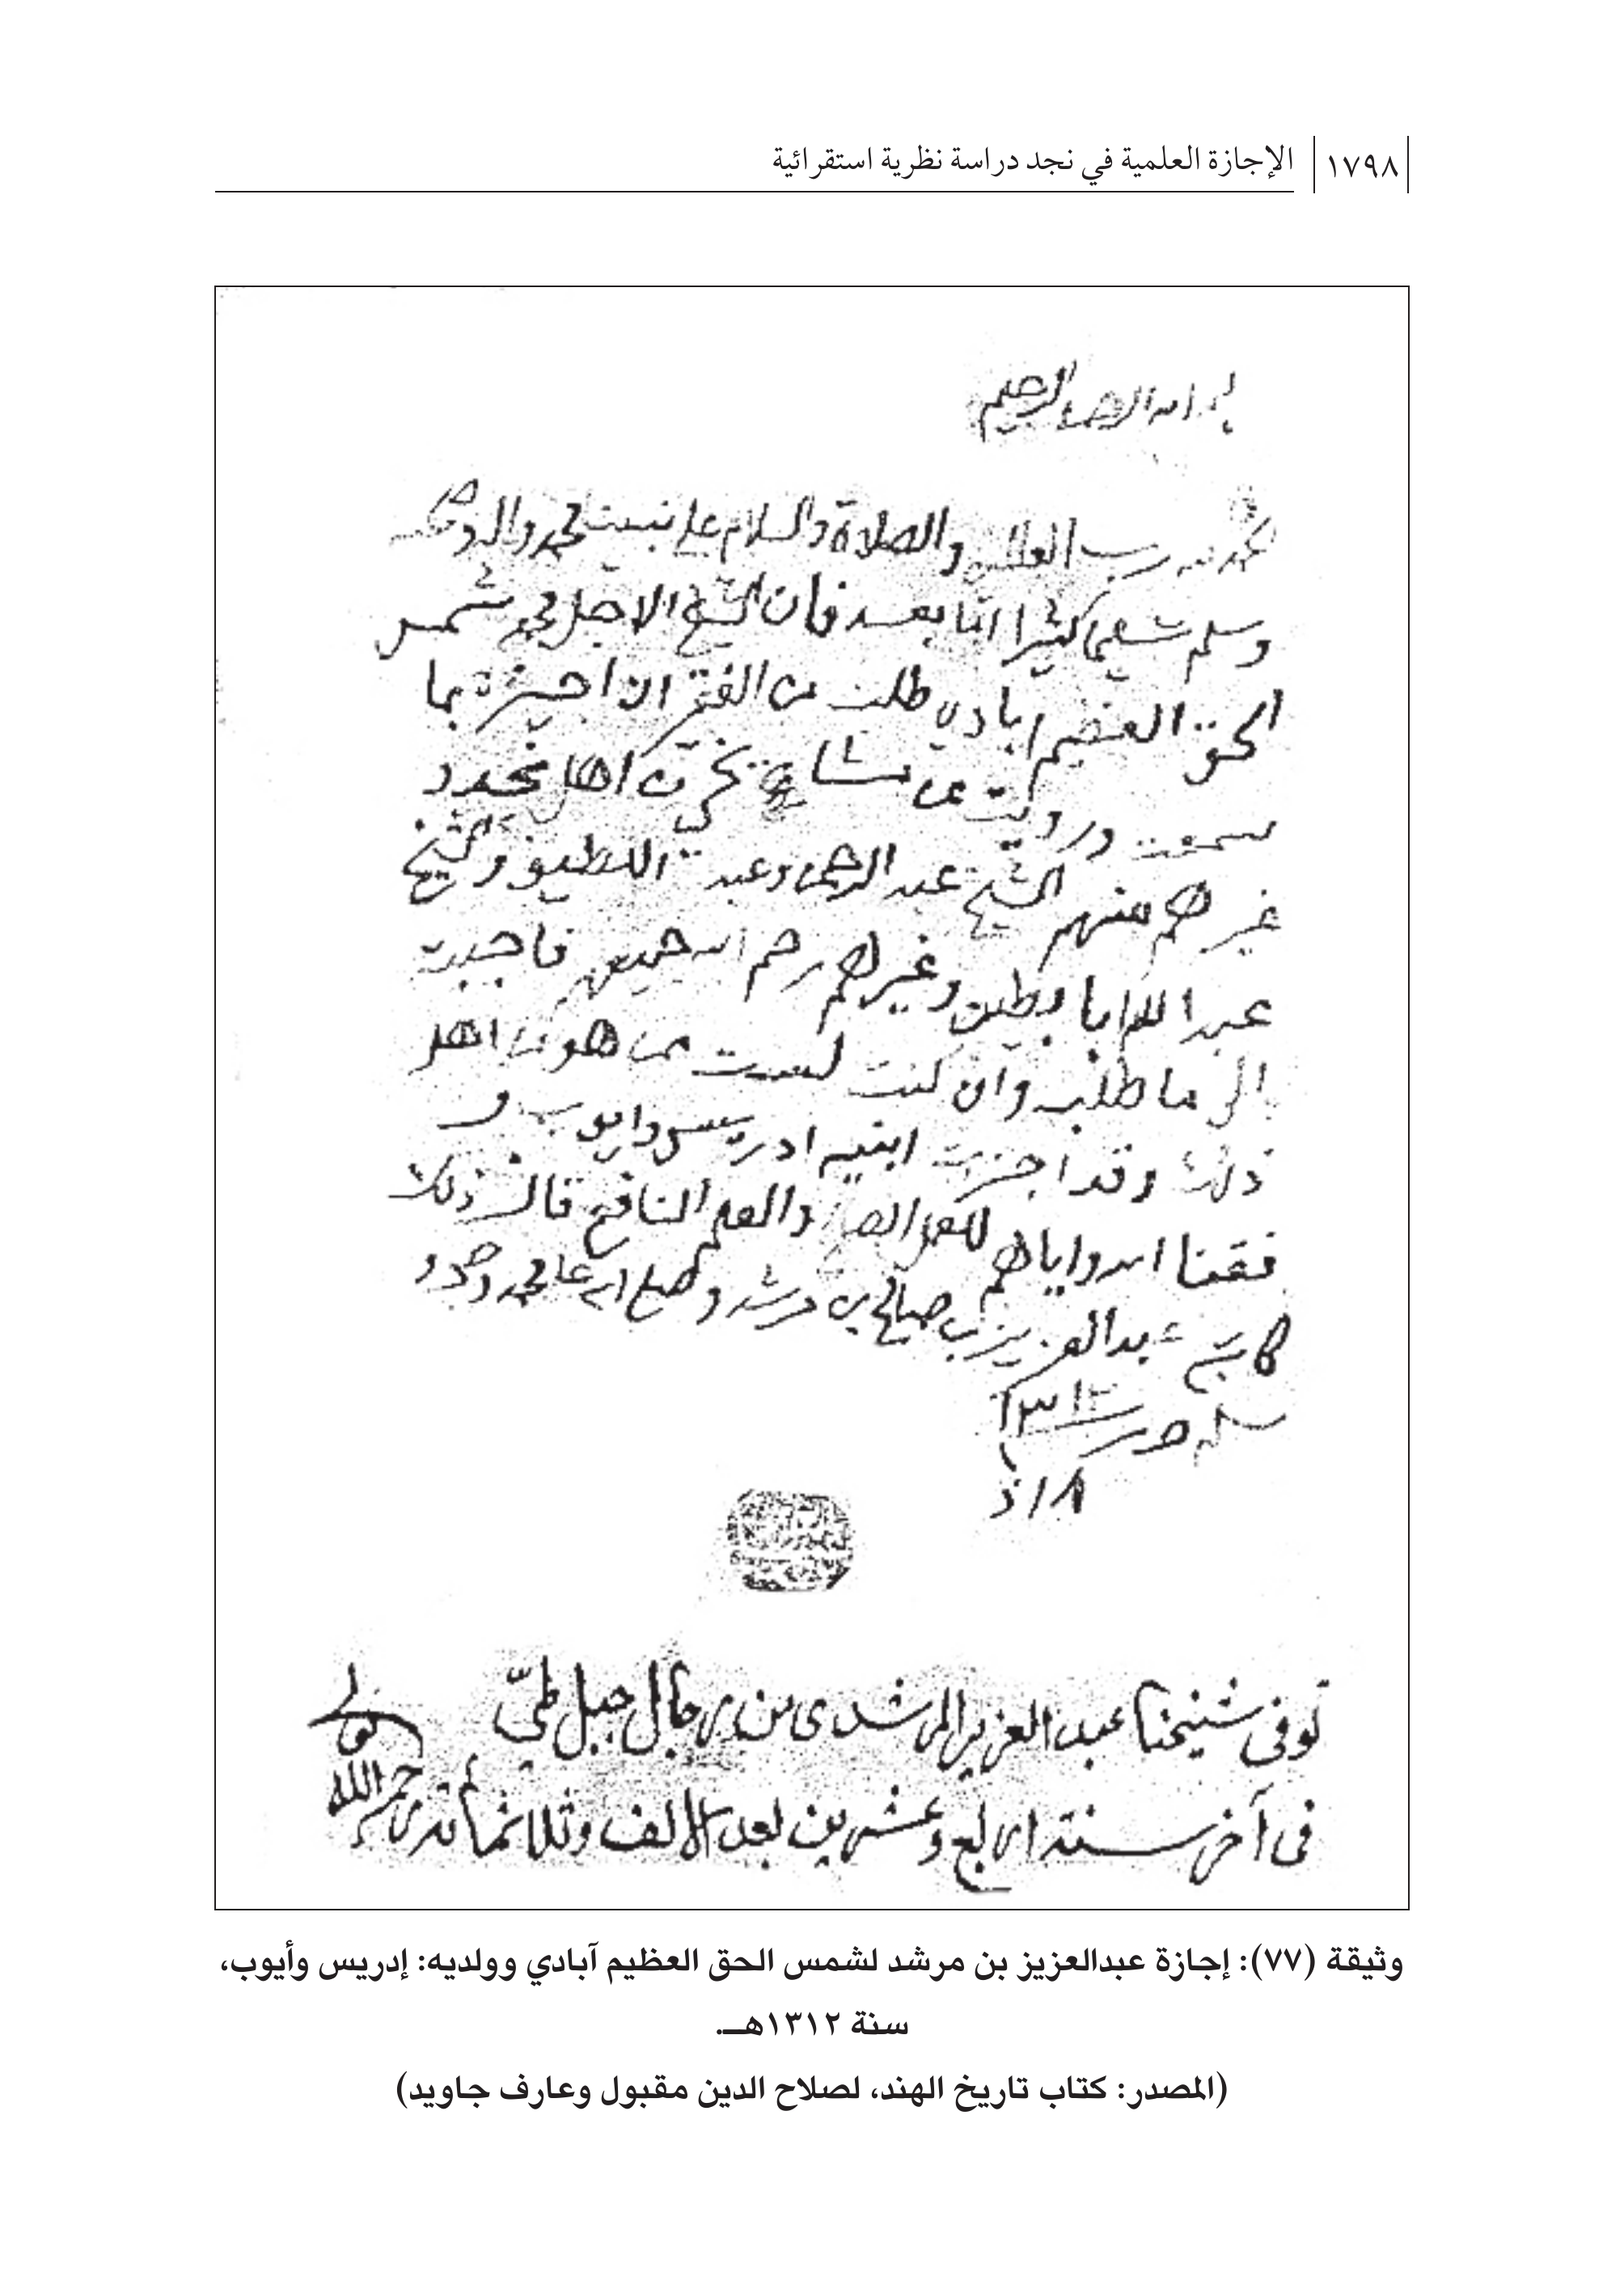 ١٧٩٨ الإجازة العلمية في نجد دراسة نظرية استقرائية
الرحيم
رب العالمين والصلاة والسلام على نبينا محمد واله وصحبه
وسلم تسليما كثيرا اما بعد فان الشيخ الاجل محمد شمس
الحق العضيم ابادي طلب من الفقير ان اجيزه بما
سمعت ورويت عن مشايخي من اهل نجد و
غيرهم منهم الشيخ عبد الرحمن وعبد اللطيف والشيخ
عبد الله ابا بطين وغيرهم رحم الله جميعهم فاجبت
الى ما طلب وان كنت لست ممن هو من اهل
ذلك وقد اجزت ابنيه ادريس وايوب و
فقنا الله واياهم للعمل الصالح والعلم النافع قال ذلك
كاتبه عبد العزيز بن صالح بن مرشد وصلى الله على محمد وصحبه و
سلم حرر ١٣١٢
١٨ / ذ
توفى شيخنا عبد العزيز المرشدى من رجال جبل طيّ
فى آخر سنة اربع وعشرين بعد الالف وثلاثمائة رحمه الله
وثيقة (٧٧): إجازة عبدالعزيز بن مرشد لشمس الحق العظيم آبادي وولديه: إدريس وأيوب،
سنة ١٣١٢هـ.
(المصدر: كتاب تاريخ الهند، لصلاح الدين مقبول وعارف جاويد)